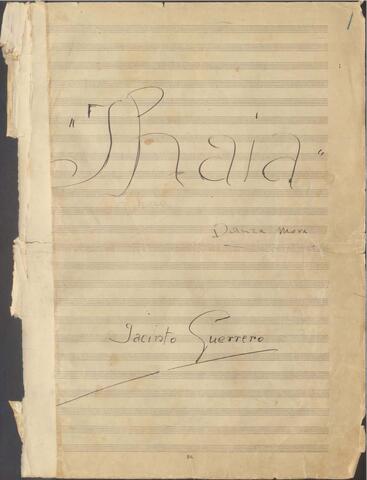 1
"Thaia"
Danza mora
Jacinto Guerrero